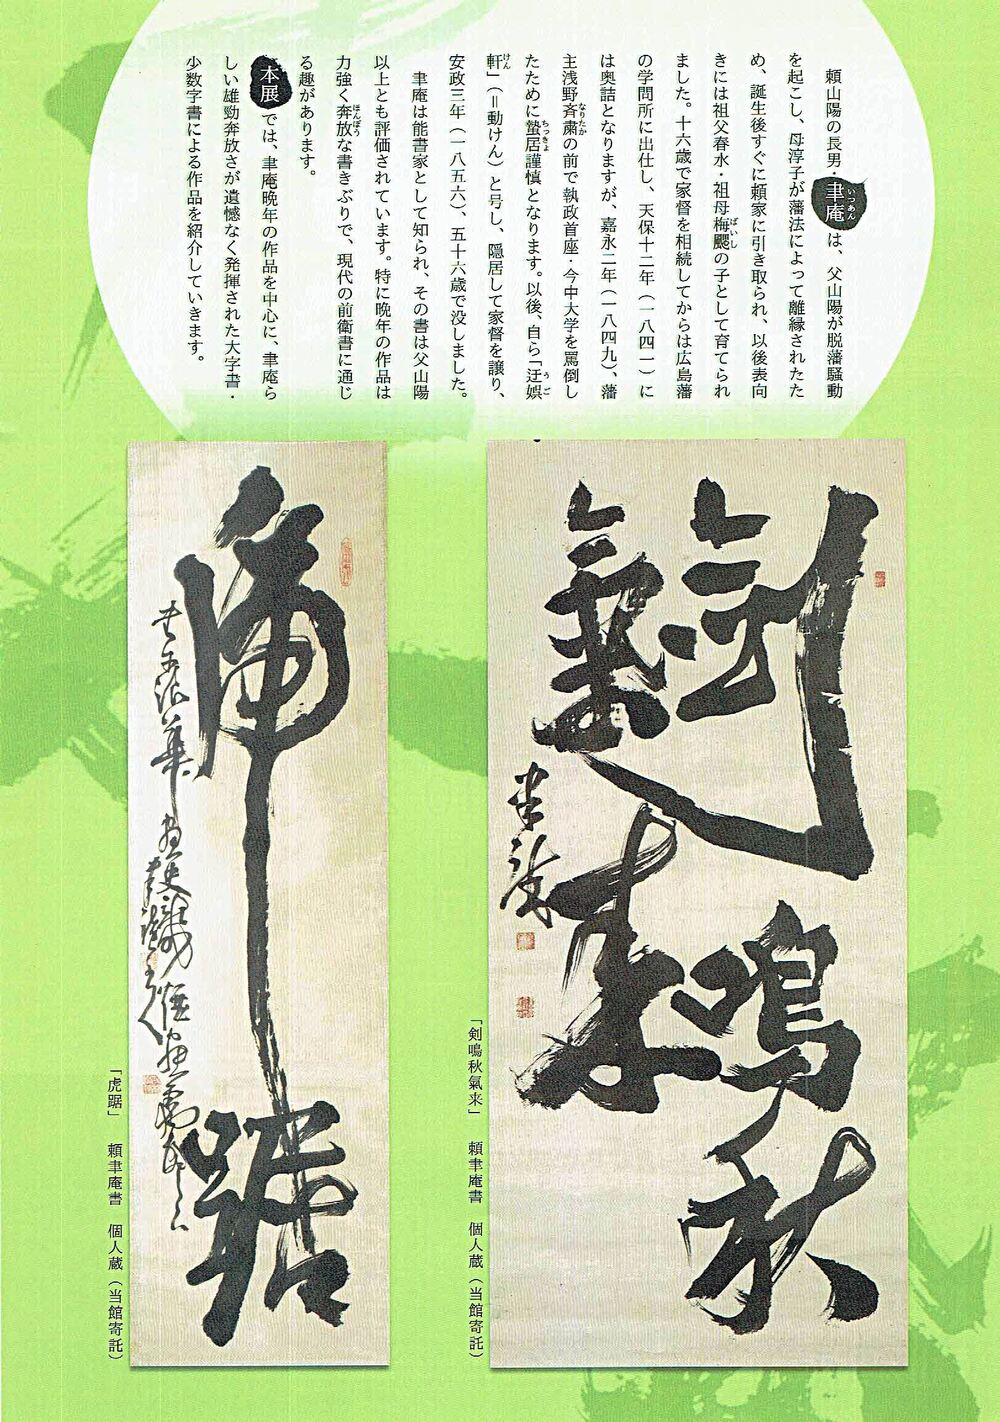 頼山陽の長男・聿庵は、父山陽が脱藩騒動
を起こし、母淳子が藩法によって離縁されたた
め、誕生後すぐに頼家に引き取られ、以後表向
きには祖父春水・祖母梅颸の子として育てられ
ました。十六歳で家督を相続してからは広島藩
の学問所に出仕し、天保十二年（一八四一）に
は奥詰となりますが、嘉永二年（一八四九）、藩
主浅野斉粛の前で執政首座・今中大学を罵倒し
たために蟄居謹慎となります。以後、自ら「迂娯
軒」（＝動けん）と号し、隠居して家督を譲り、
安政三年（一八五六）、五十六歳で没しました。
聿庵は能書家として知られ、その書は父山陽
以上とも評価されています。特に晩年の作品は
力強く奔放な書きぶりで、現代の前衛書に通じ
る趣があります。
本展では、聿庵晩年の作品を中心に、聿庵ら
しい雄勁奔放さが遺憾なく発揮された大字書・
少数字書による作品を紹介していきます。
いつあん
ばいし
なりたか
ちっきょ
うご
けん
ほんぽう
剣鳴秋
氣来
「剣鳴秋氣来」 頼聿庵書 個人蔵（当館寄託）
虎踞
「虎踞」 頼聿庵書 個人蔵（当館寄託）